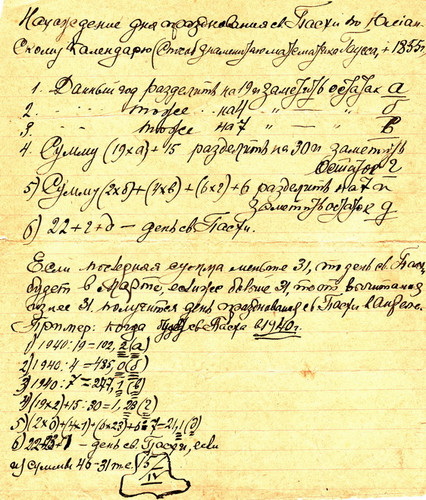 Нахождение дня празднования св. Пасхи по Юлиан-
скому календарю (Способ знаменитого математика Гаусса, + 1855 г.
1. Данный год разделить на 19 и заметить остаток а
2. " " тоже " на 4 " — " б
3 " " тоже " на 7 " — " в
4. Сумму (19ха) + 15 разделить на 30 и заметить
остаток г
5) Сумму (2хб)+(4хв)+(6хг)+6 разделить на 7 и
заметить остаток д
6) 22+г+д – день св. Пасхи.
Если последняя сумма меньше 31, то день св. Пасхи
будет в марте, если же больше 31, то от вычитания
из нее 31 получится день празднования св. Пасхи в апреле.
Пример: когда будет св. Пасха в 1940 г.
1) 1940:19=102, 2 (а)
2) 1940:4=485, 0 (б)
3) 1940:7=277, 1 (в)
4) (19х2)+15:30=1, 23 (г)
5) (2х0)+(4х1)+(6х23)+6:7=21, 1 (д)
6) 22+23+1 – день св. Пасхи, если
из суммы 46-31 т.е. 15
IV